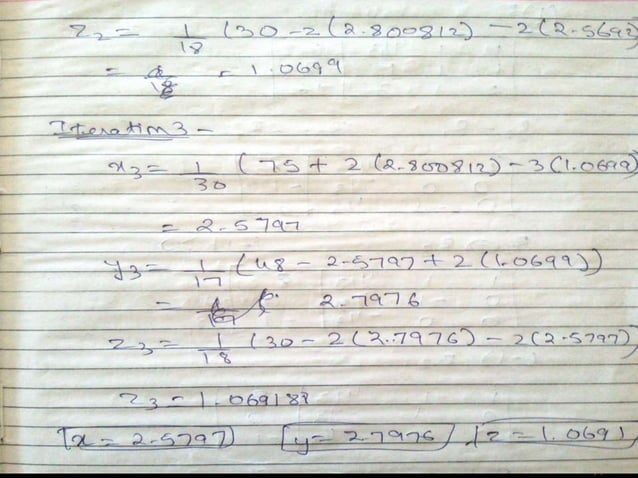 z₂ = 1/18 (30 - 2(2.800812) - 2(2.5692)
= 1.0699
Iteration 3 -
x₃ = 1/30 (75 + 2(2.800812) - 3(1.0699)
= 2.5797
y₃ = 1/17 (48 - 2.5797 + 2(1.0699))
= 2.7976
z₃ = 1/18 (30 - 2(2.7976) - 2(2.5797)
z₃ = 1.069188
x = 2.5797 y = 2.7976 z = 1.0691